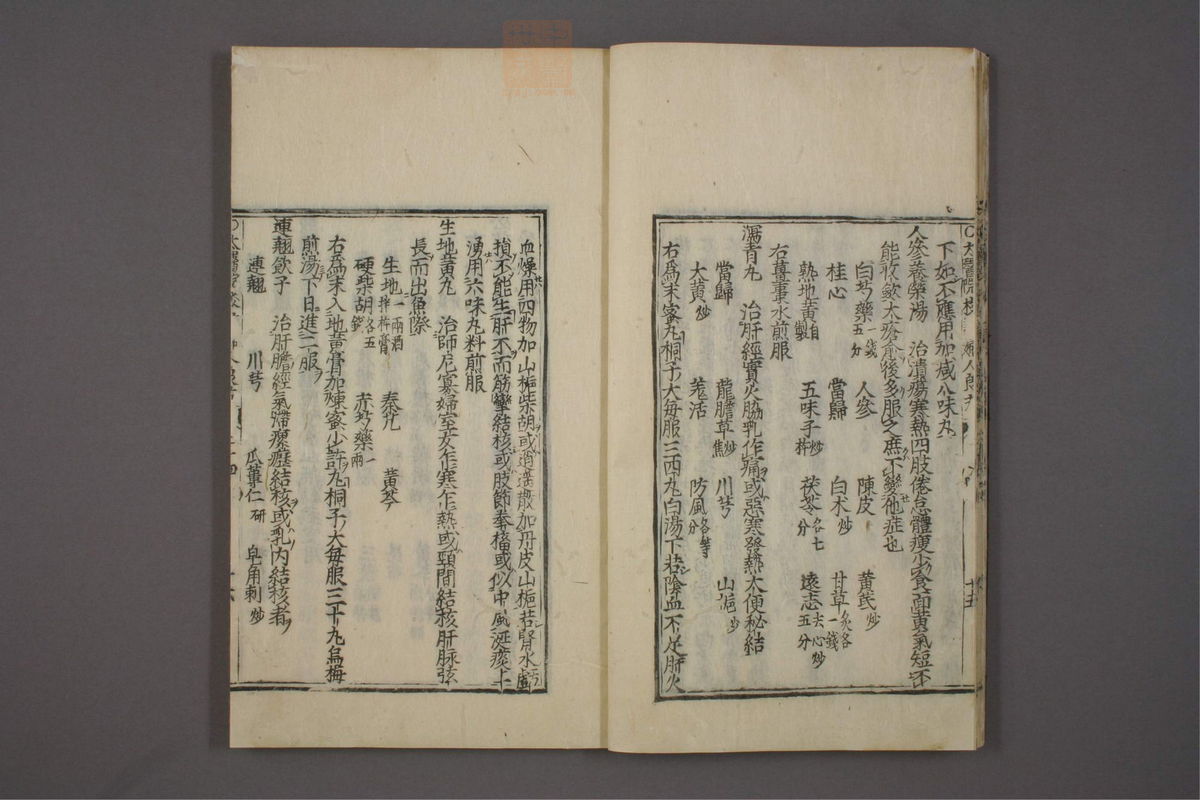 下如不應用加減八味丸
人參養榮湯　治潰瘍寒熱四肢倦怠體瘦少食面黃氣短不
能收斂大瘡愈後多服之庶不變他症也
白芍藥一錢五分　人參　陳皮　黃芪炒
桂心　當歸　白朮炒　甘草炙各一錢
熟地黃自製　五味子炒杵　茯苓各七分　遠志去心炒五分
右薑棗水煎服
瀉青丸　治肝經實火脇乳作痛或惡寒發熱大便秘結
當歸　龍膽草炒焦　川芎　山梔炒
大黃炒　羗活　防風各等分
右爲末蜜丸桐子大每服三四丸白湯下若陰血不足肝火
血燥用四物加山梔柴胡或逍遙散加丹皮山梔若腎水虧
損不能生肝不而筋攣結核或肢節拳搐或似中風涎痰上
湧用六味丸料煎服
生地黃丸　治師尼寡婦室女乍寒乍熱或頸間結核肝脉弦
長而出魚際
生地一兩酒拌杵膏　秦艽　黃芩
硬柴胡各五錢　赤芍藥一兩
右爲末入地黃膏加煉蜜少許丸桐子大每服三十丸烏梅
煎湯下日進二服
連翹飲子　治肝膽經氣滯瘰癧結核或乳內結核者
連翹　川芎　瓜蔞仁研　皂角刺炒